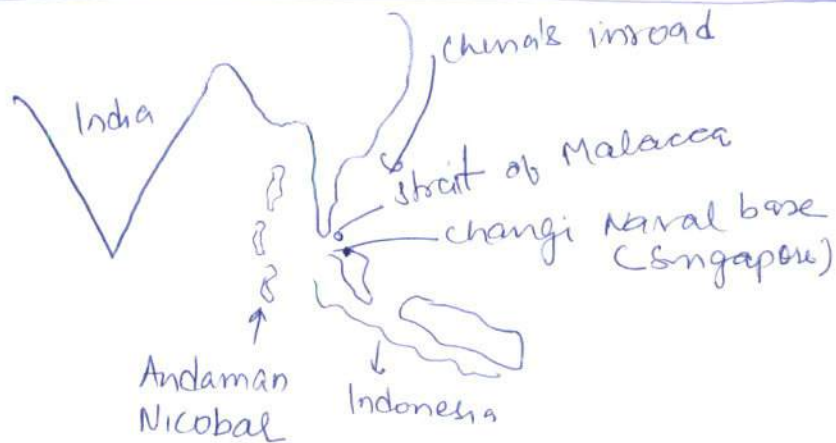 China's inroad
India
Strait of Malacca
Changi Naval base
(Singapore)
Andaman
Nicobar
Indonesia